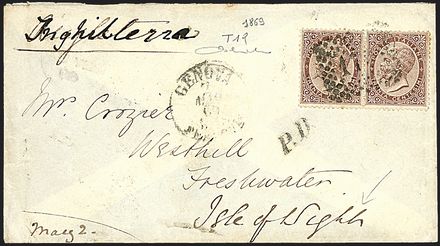 Inghilterra
1869
T19
GENOVA
P.D
Mr. Crozier
Westhill
Freshwater
Isle of Wight